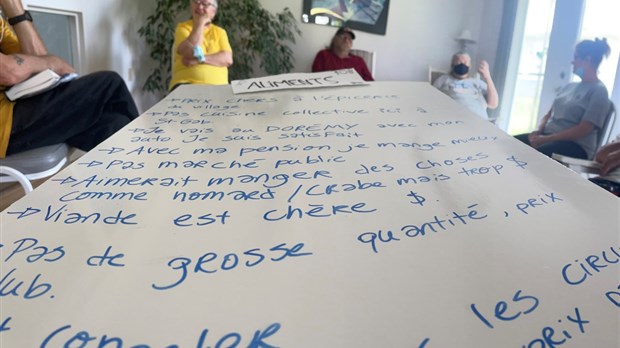 ALIMENTS
→ PRIX CHERS À L'ÉPICERIE
du village
→ Pas cuisine collective ici à
→ Je vais au DOREMY avec mon
auto je suis satisfait
→ Avec ma pension je mange mieux
→ Pas marché public
→ Aimerait manger des choses
comme homard / crabe mais trop $
→ Viande est chère $.
Pas de grosse quantité, prix
lub.
les circu
prix